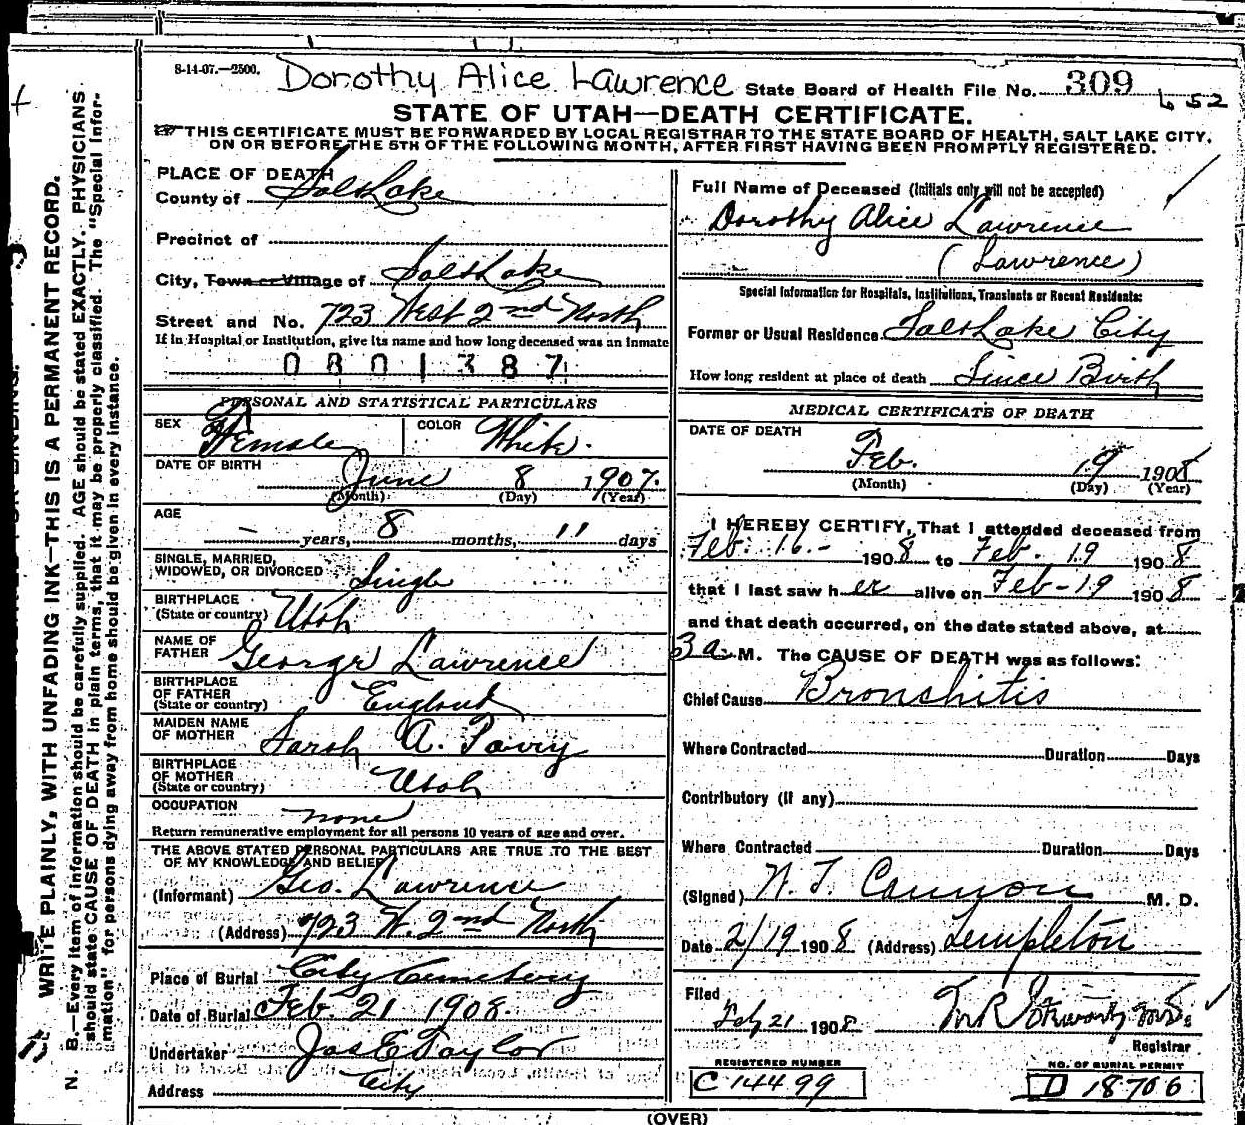 8-14-07.—2500. Dorothy Alice Lawrence State Board of Health File No. 309
652
STATE OF UTAH—DEATH CERTIFICATE.
THIS CERTIFICATE MUST BE FORWARDED BY LOCAL REGISTRAR TO THE STATE BOARD OF HEALTH, SALT LAKE CITY,
ON OR BEFORE THE 5TH OF THE FOLLOWING MONTH, AFTER FIRST HAVING BEEN PROMPTLY REGISTERED.
PLACE OF DEATH
County of Salt Lake
Precinct of
City, Town or Village of Salt Lake
Street and No. 723 West 2nd North
If in Hospital or Institution, give its name and how long deceased was an inmate
0801387
PERSONAL AND STATISTICAL PARTICULARS
SEX Female COLOR White.
DATE OF BIRTH June 8 1907.
(Month) (Day) (Year)
AGE
— years, 8 months, 11 days
SINGLE, MARRIED,
WIDOWED, OR DIVORCED Single
BIRTHPLACE
(State or country) Utah
NAME OF
FATHER George Lawrence
BIRTHPLACE
OF FATHER
(State or country) England
MAIDEN NAME
OF MOTHER Sarah A.
BIRTHPLACE
OF MOTHER
(State or country) Utah
OCCUPATION none
Return remunerative employment for all persons 10 years of age and over.
THE ABOVE STATED PERSONAL PARTICULARS ARE TRUE TO THE BEST
OF MY KNOWLEDGE AND BELIEF
(Informant) Geo. Lawrence
(Address) 723 W. 2nd North
Place of Burial City Cemetery
Date of Burial Feb. 21 1908.
Undertaker Jos E Taylor
Address City
Full Name of Deceased (Initials only will not be accepted)
Dorothy Alice Lawrence
(Lawrence)
Special Information for Hospitals, Institutions, Transients or Recent Residents:
Former or Usual Residence Salt Lake City
How long resident at place of death Since Birth
MEDICAL CERTIFICATE OF DEATH
DATE OF DEATH
Feb. 19 1908
(Month) (Day) (Year)
I HEREBY CERTIFY, That I attended deceased from
Feb. 16.- 1908 to Feb. 19 1908
that I last saw her alive on Feb-19 1908
and that death occurred, on the date stated above, at
3 a. M. The CAUSE OF DEATH was as follows:
Chief Cause Bronchitis
Where Contracted Duration Days
Contributory (if any)
Where Contracted Duration Days
(Signed) W. T. Cannon M. D.
Date 2/19 1908 (Address) Templeton
Filed
Feb 21 1908
Registrar
REGISTERED NUMBER
C 14499
NO. OF BURIAL PERMIT
D 18706
(OVER)
WRITE PLAINLY, WITH UNFADING INK—THIS IS A PERMANENT RECORD.
N. B.—Every item of information should be carefully supplied. AGE should be stated EXACTLY. PHYSICIANS
should state CAUSE OF DEATH in plain terms, that it may be properly classified. The "Special Infor-
mation" for persons dying away from home should be given in every instance.